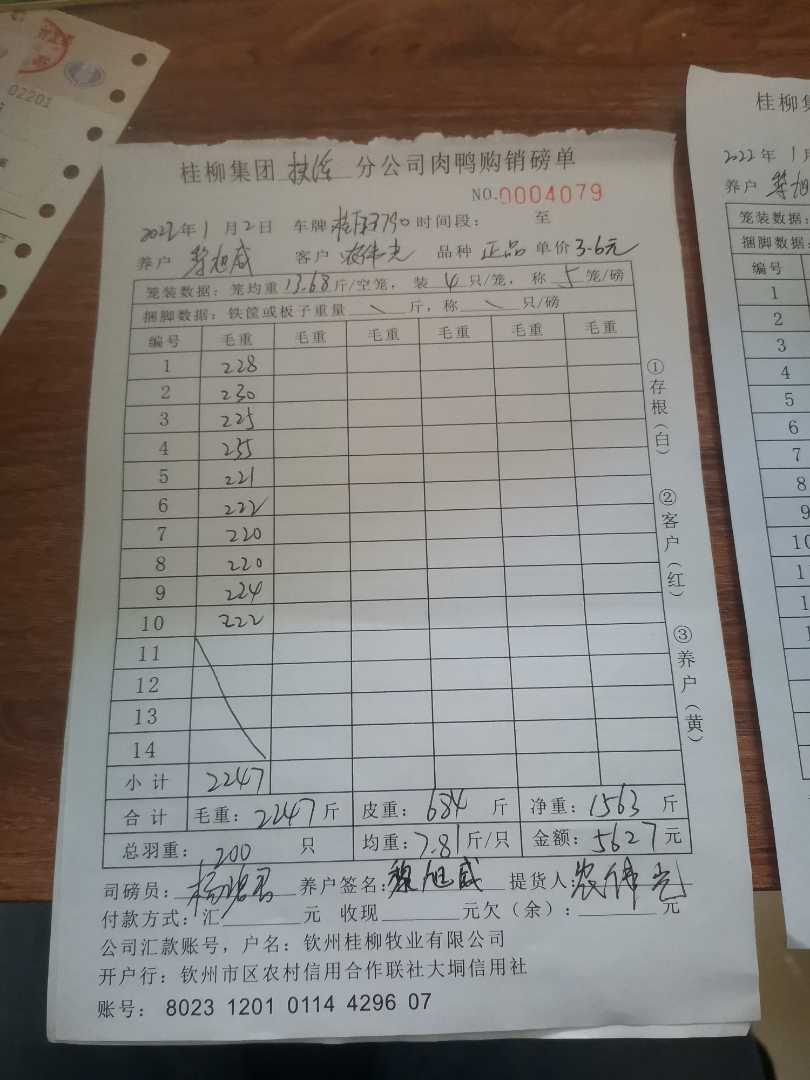 02201
桂柳集团 扶绥 分公司肉鸭购销磅单
NO.0004079
2022年1月2日 车牌 时间段： 至
养户 黎旭威 客户 农伟光 品种 正品 单价 3.6元
笼装数据：笼均重 13.68 斤/空笼，装 4 只/笼，称 5 笼/磅
捆脚数据：铁筐或板子重量 \ 斤，称 \ 只/磅
编号 毛重 毛重 毛重 毛重 毛重 毛重
1 228
2 230
3 225
4 235
5 221
6 222
7 220
8 220
9 224
10 222
11
12
13
14
小计 2247
合计 毛重：2247斤 皮重：684 斤 净重：1563 斤
总羽重：200 只 均重：7.81斤/只 金额：5627元
司磅员： 养户签名：黎旭威 提货人：农伟光
付款方式：汇 元 收现 元欠（余）： 元
公司汇款账号，户名：钦州桂柳牧业有限公司
开户行：钦州市区农村信用合作联社大垌信用社
账号： 8023 1201 0114 4296 07
①存根（白）
②客户（红）
③养户（黄）
桂柳集
2022年1月
养户 黎旭
笼装数据：
捆脚数据：
编号
1
2
3
4
5
6
7
8
9
10